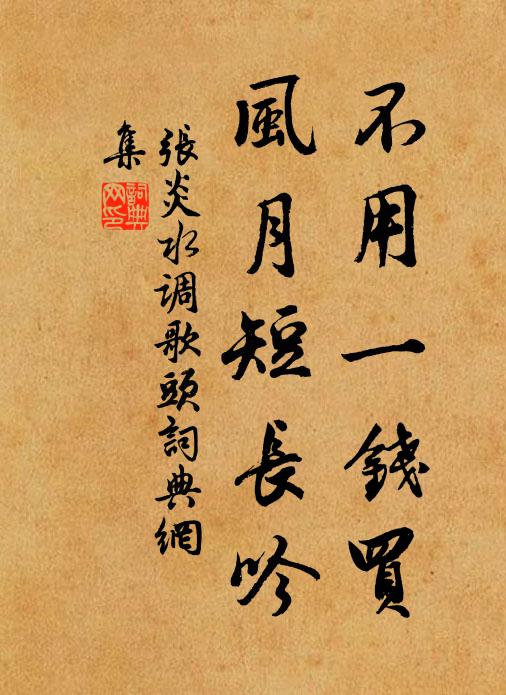 不用一錢買
風月短長吟
張炎水调歌頭詞典網
集
詞典网印